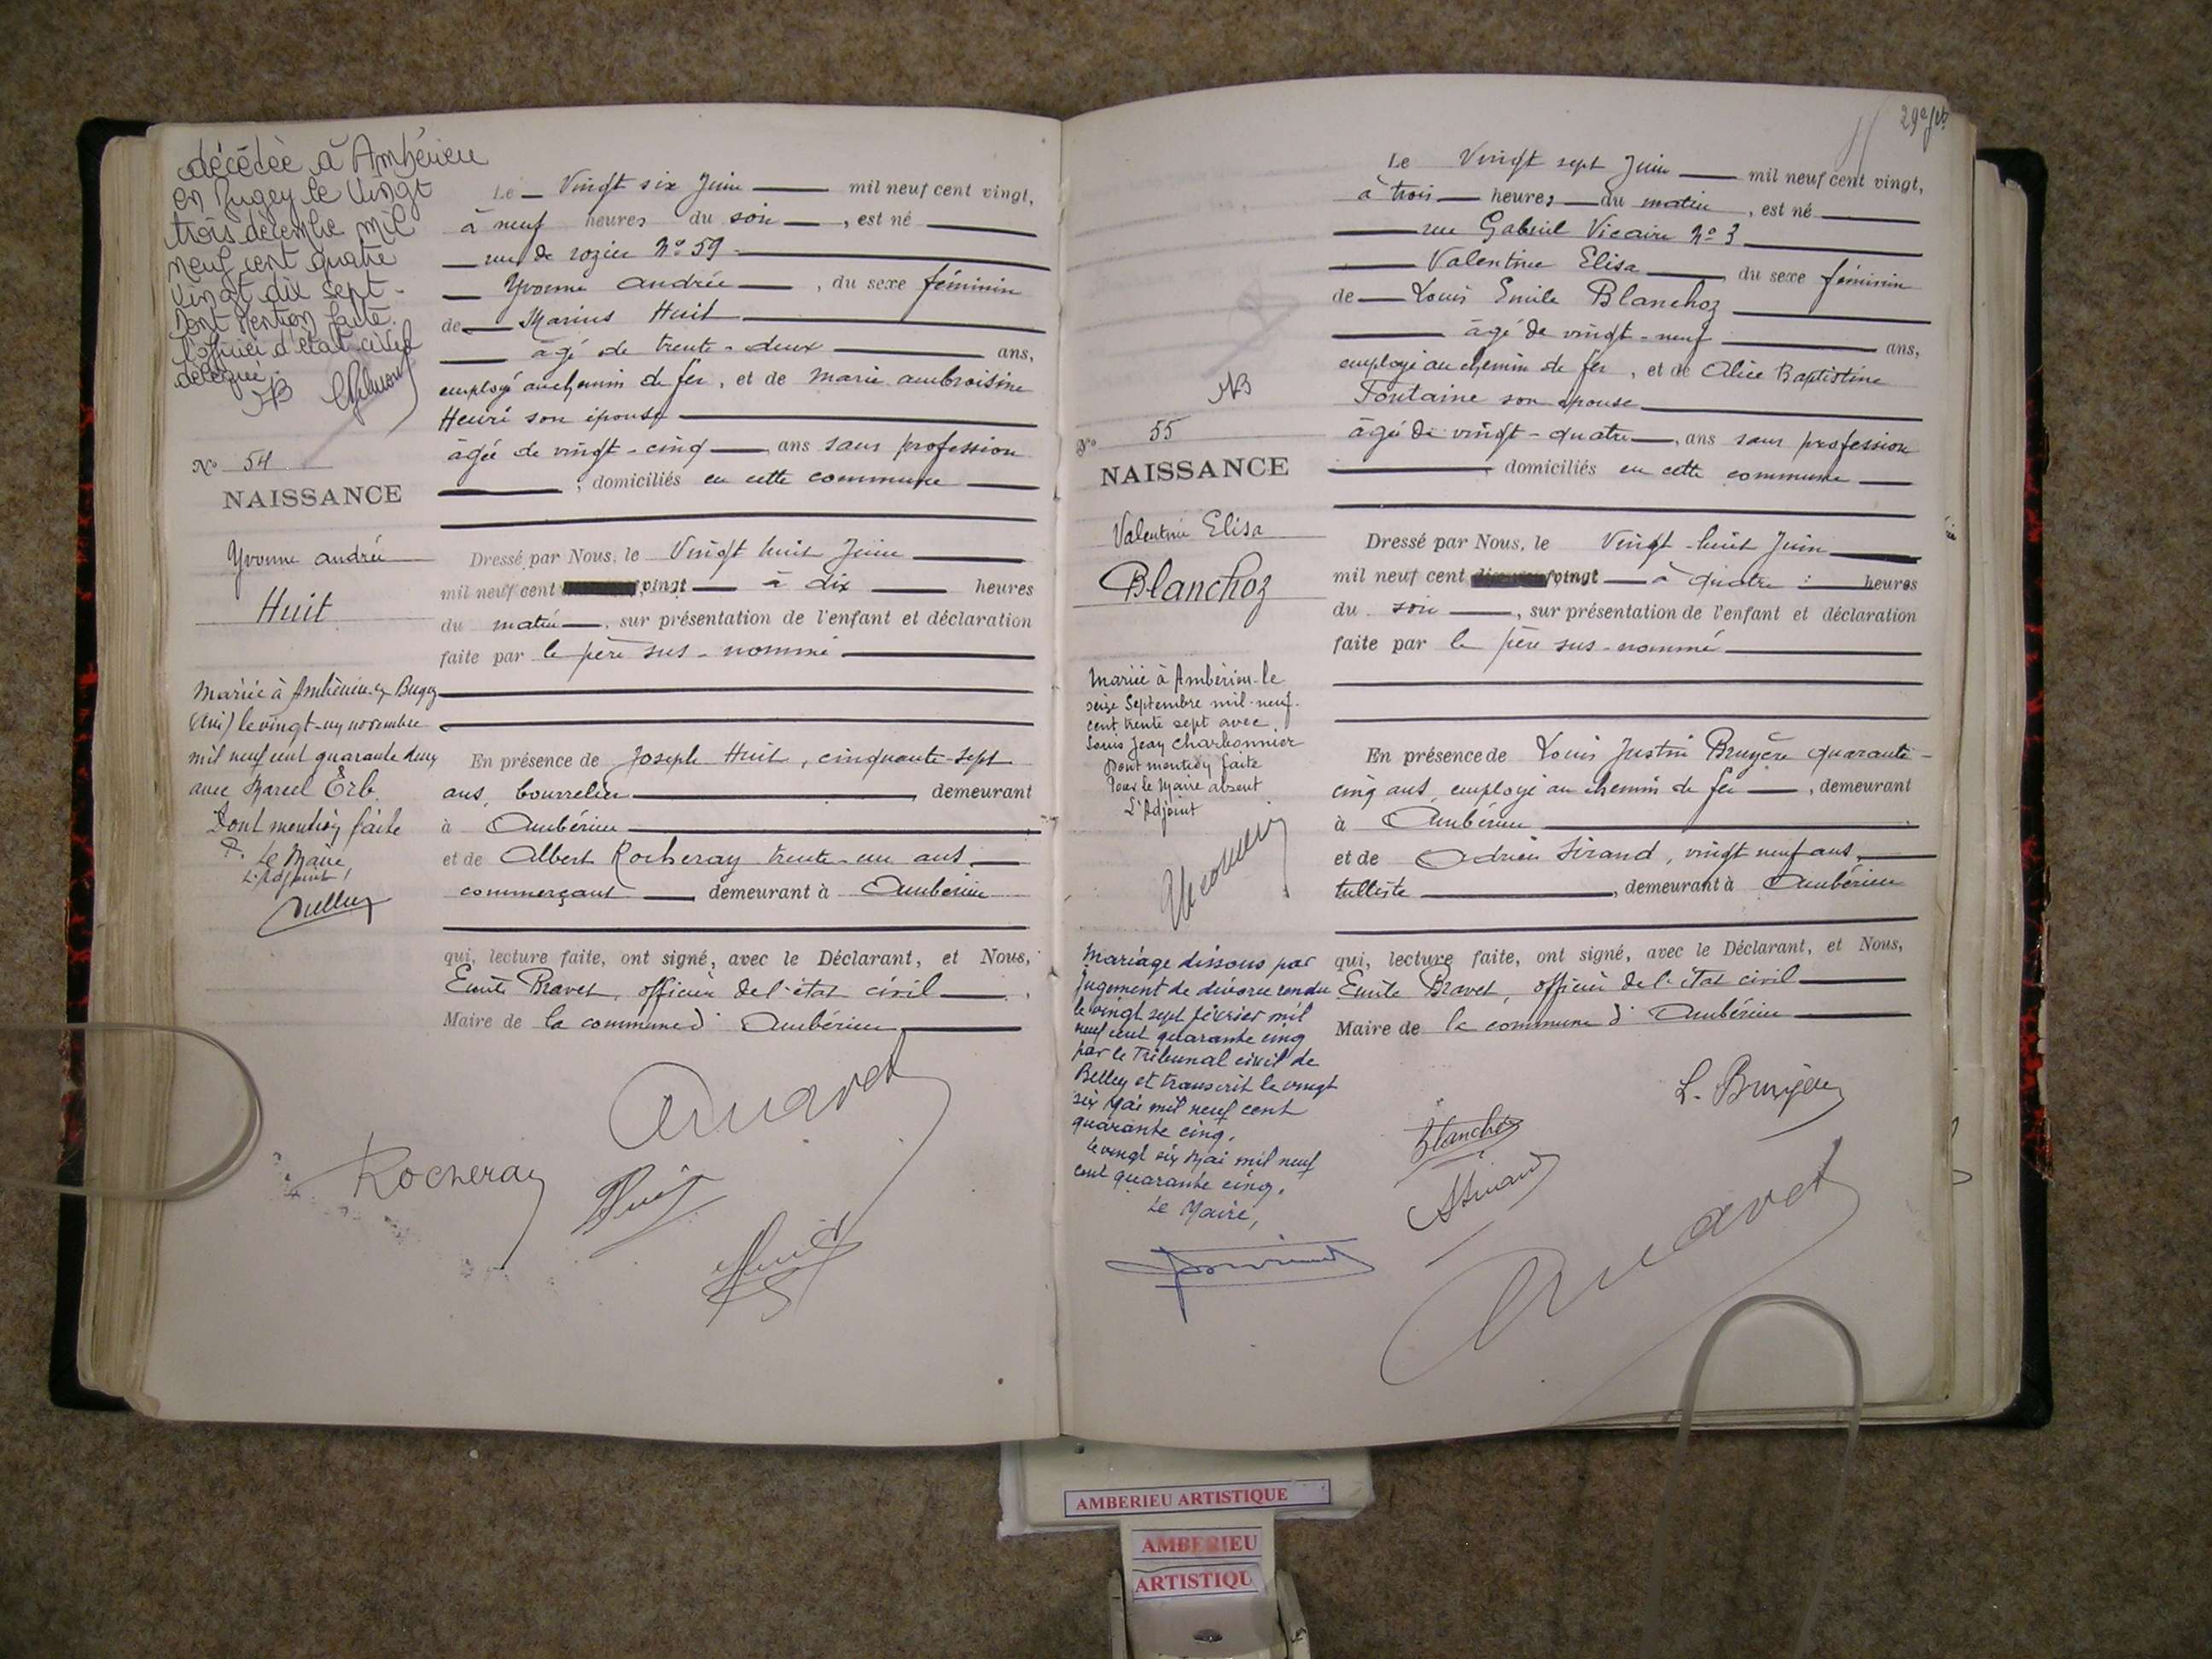 décédée à Ambérieu
en Bugey le Vingt
trois décembre mil
neuf cent quatre
vingt dix sept.
Dont Mention faite.
l'officier d'état civil
délégué.
NB
N° 54
NAISSANCE
Yvonne andrée
Huit
Mariée à Ambérieu-en-Bugey
(Ain) le vingt-un novembre
mil neuf cent quarante deux
avec Marcel Erb
Dont mention faite
P. Le Maire,
L'Adjoint,
Le Vingt six Juin mil neuf cent vingt,
à neuf heures du soir, est né
rue de rozier N° 59
Yvonne andrée, du sexe féminin
de Marius Huit
âgé de trente-deux ans,
employé au chemin de fer, et de Marie ambroisine
Henri son épouse
âgée de vingt-cinq ans sans profession
, domiciliés en cette commune
Dressé par Nous, le Vingt huit Juin
mil neuf cent vingt à dix heures
du matin, sur présentation de l'enfant et déclaration
faite par le père sus-nommé
En présence de Joseph Huit, cinquante-sept
ans, bourrelier, demeurant
à Ambérieu
et de Albert Rocheray trente-un ans,
commerçant demeurant à Ambérieu
qui, lecture faite, ont signé, avec le Déclarant, et Nous,
Emile Bravet, officier de l'état civil,
Maire de la commune d'Ambérieu
Rocheray
Huit
Huit
29
Le Vingt sept Juin mil neuf cent vingt,
à trois heures du matin, est né
rue Gabriel Vicaire N° 3
Valentine Elisa, du sexe féminin
de Louis Emile Blanchoz
âgé de vingt-neuf ans,
employé au chemin de fer, et de Alice Baptistine
Fontaine son épouse
âgée de vingt-quatre, ans sans profession
, domiciliés en cette commune
NB
N° 55
NAISSANCE
Valentine Elisa
Blanchoz
Mariée à Ambérieu le
seize Septembre mil-neuf-
cent trente sept avec
Louis Jean Charbonnier
Dont mention faite
Pour le Maire absent
L'Adjoint
Mariage dissous par
jugement de divorce rendu
le vingt sept février mil
neuf cent quarante cinq
par le Tribunal civil de
Belley et transcrit le vingt
six Mai mil neuf cent
quarante cinq.
le vingt six Mai mil neuf
cent quarante cinq.
Le Maire,
Dressé par Nous, le Vingt-huit Juin
mil neuf cent vingt à quatre heures
du soir, sur présentation de l'enfant et déclaration
faite par le père sus-nommé
En présence de Louis Justin Bruyère quarante-
cinq ans, employé au chemin de fer, demeurant
à Ambérieu
et de Adrien Sirand, vingt neuf ans,
tulliste, demeurant à Ambérieu
qui, lecture faite, ont signé, avec le Déclarant, et Nous,
Emile Bravet, officier de l'état civil
Maire de la commune d'Ambérieu
L. Bruyère
Blanchoz
ASirand
AMBERIEU ARTISTIQUE
AMBERIEU
ARTISTIQU